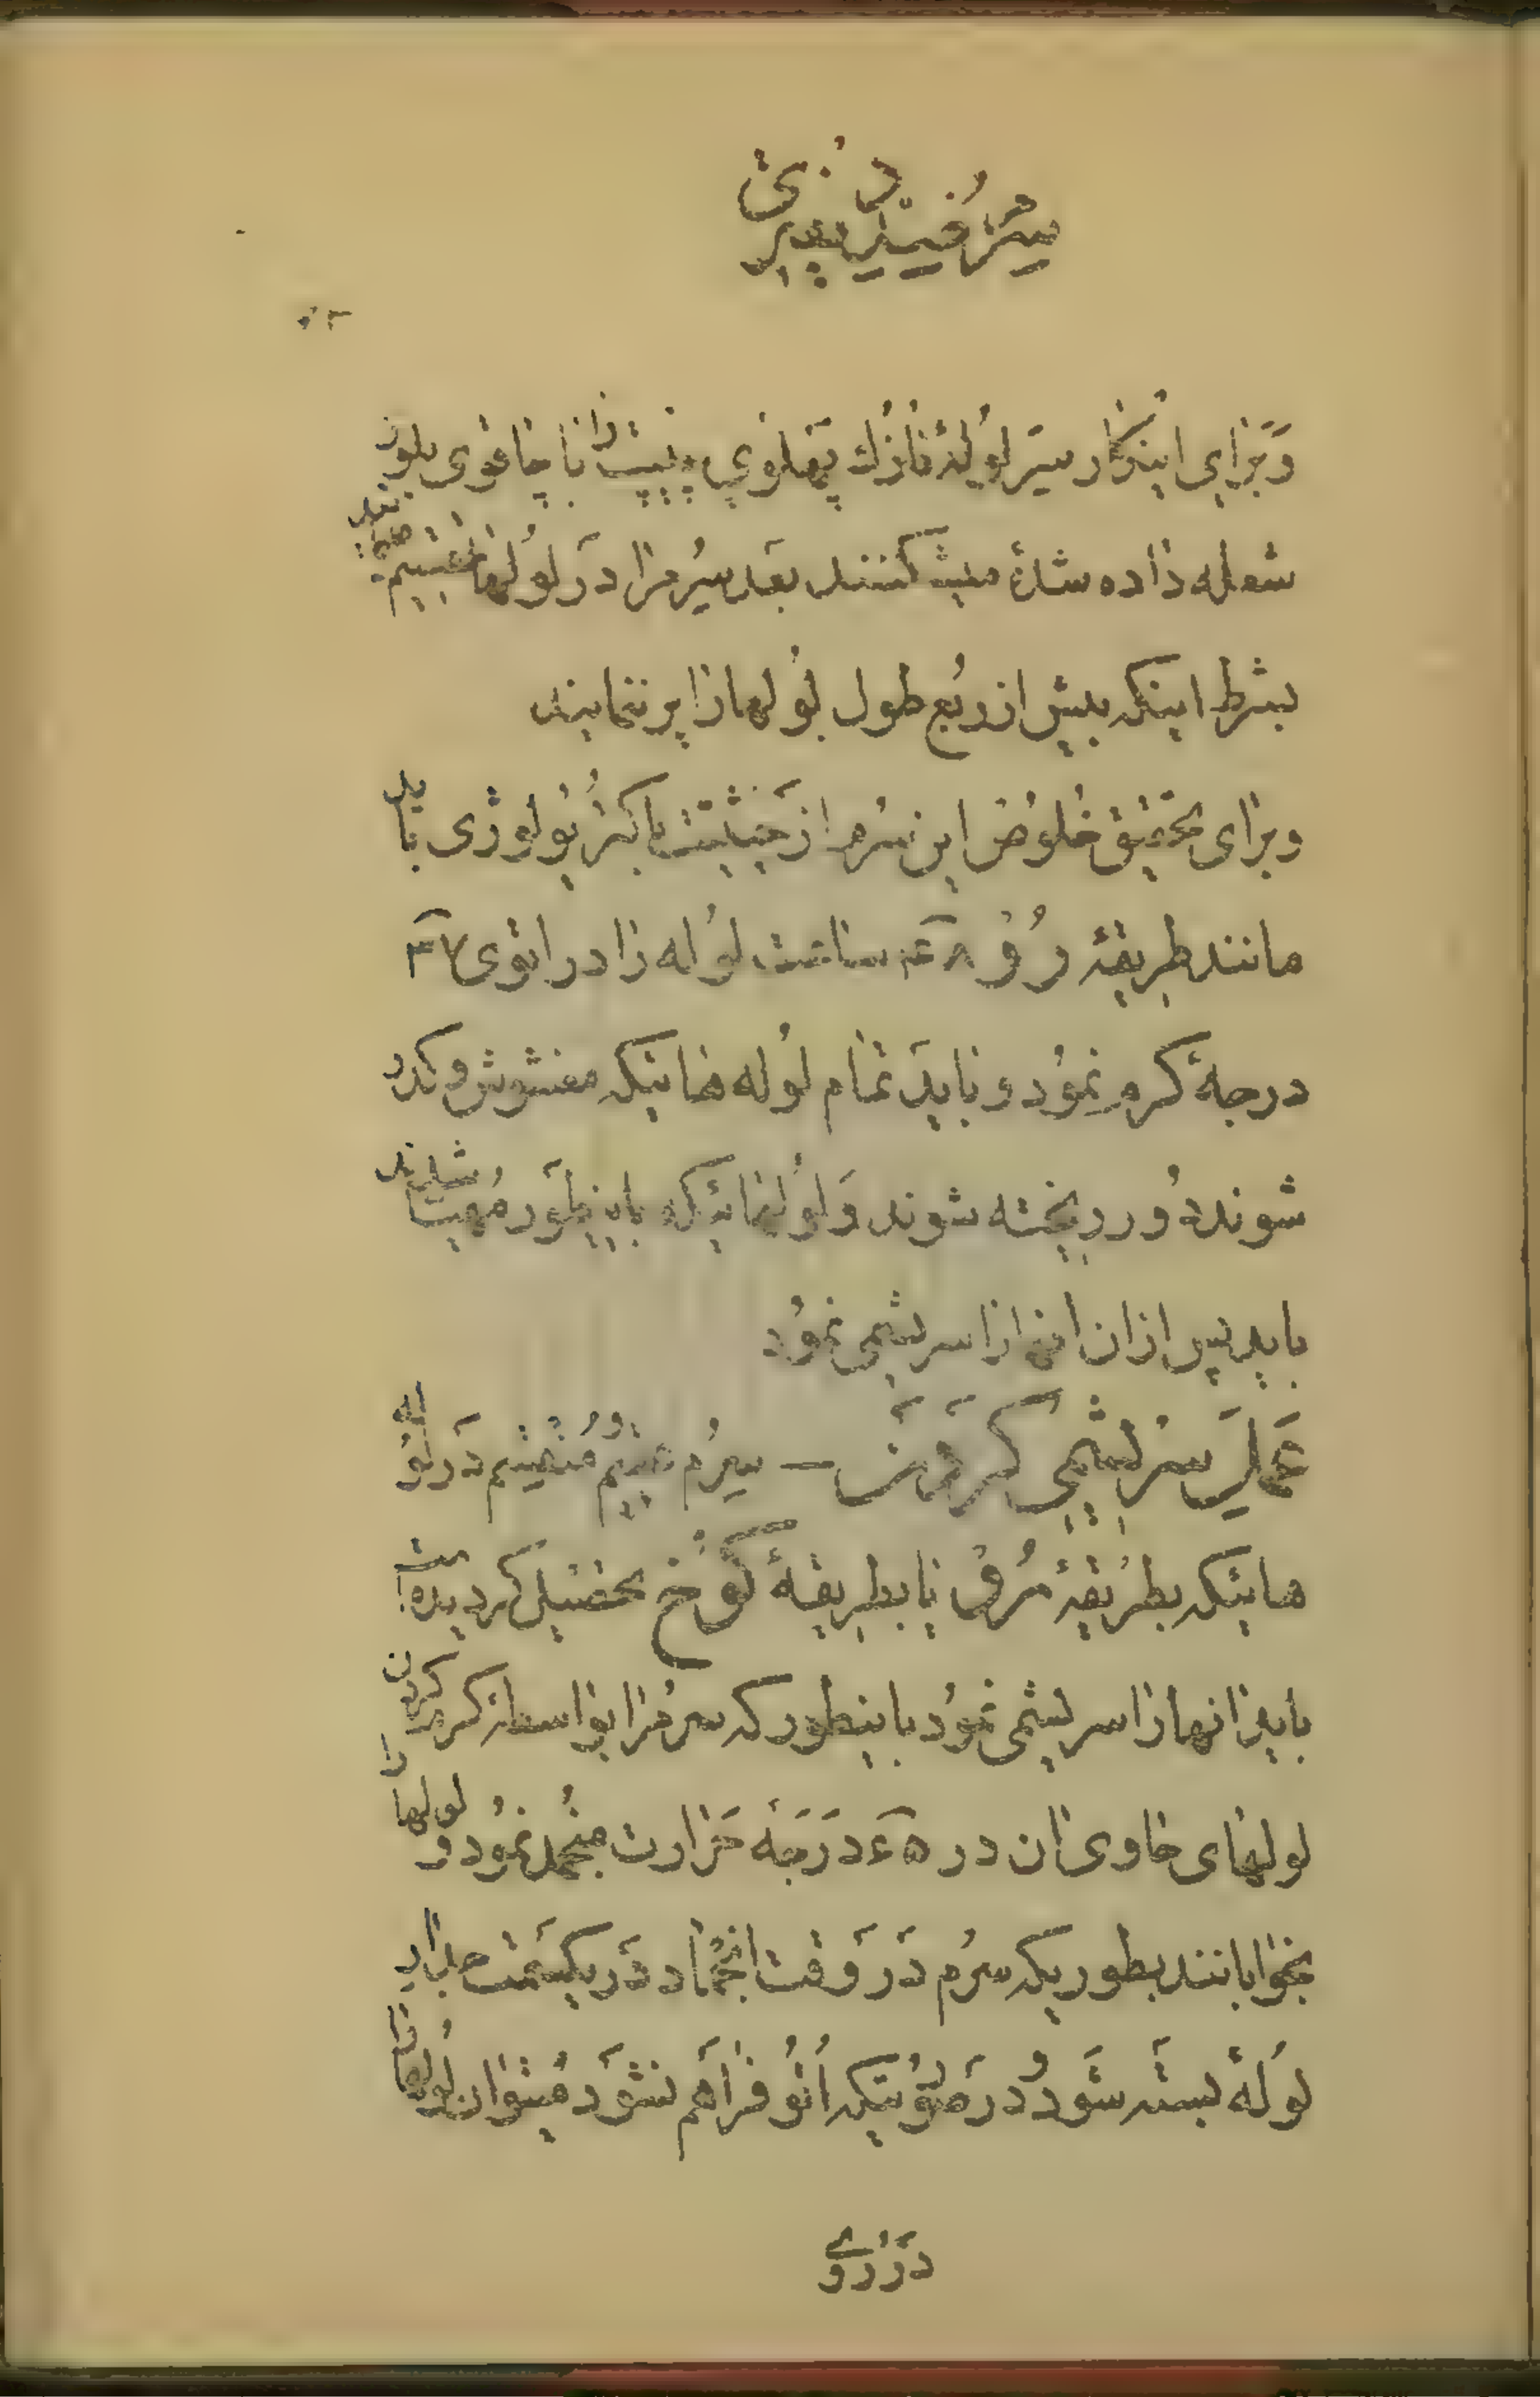 وبرای اینکار سر لولهٔ نازك پهلوی پیپت را با چاقوی بلور
شعله داده شده میشکنند بعد سرم را در لولها تقسیم
بشرط اینکه بیش از ربع طول لولها را پر ننمایند
وبرای تحقیق خلوص این سرم از حیثیت باکتریولوژی باید
مانند طریقهٔ رو ۴۸ ساعت لوله را در اتوی ۳۷
درجهٔ گرم نمود و باید تمام لوله هائیکه مغشوش و کدر
شونده دور ریخته شوند و لولهائیکه باینطور مهیا شدند
باید پس از آن آنها را سر یشمی نمود
عمل سر یشمی کردن — سرم در لوله
هائیکه بطریقهٔ رو یا بطریقهٔ کوخ تحصیل گردیده است
باید آنها را سر یشمی نمود باینطور که سرم را بواسطهٔ گرم کردن
لولهای حاوی آن در ۶۵ درجه حرارت منجمد نمود و لولها را
بخوابانند بطوریکه سرم در وقت انجماد در یکسمت جدار
لوله بسته شود و در صورتیکه اتو فراهم نشود میتوان لولها را
در روی